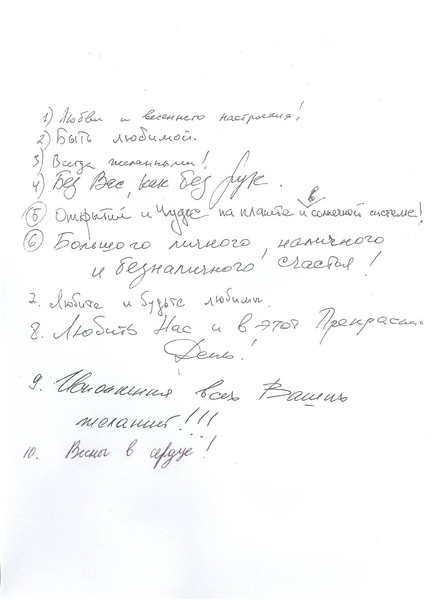 1) Любви и весеннего настроения!
2) Быть любимой.
3) Всегда желанными!
4) Без Вас, как без рук.
5 Открытий и чудес на планете и в солнечной системе!
6 Большого личного, наличного
и безналичного счастья!
7. Любите и будьте любимы.
8. Любить Нас и в этот Прекрасный
День!
9. Исполнения всех Ваших
желаний!!!
10. Весны в сердце!